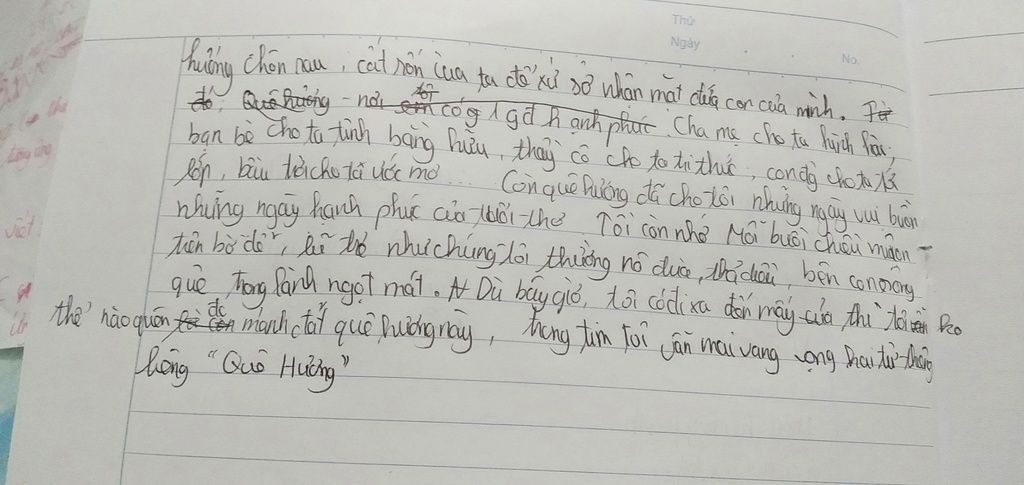 Thứ
Ngày
No.
hương chôn rau, cắt rốn của ta để xứ sở nhận mặt đứa con của mình.
đó, Quê hương - nơi có 1 gđ hạnh phúc. Cha mẹ cho ta hình hài,
bạn bè cho ta tình bằng hữu, thầy cô cho ta tri thức, con đg cho ta
lớn, bầu trời cho tôi ước mơ... Còn quê hương đã cho tôi những ngày vui buồn
những ngày hạnh phúc của tuổi thơ Tôi còn nhớ Mỗi buổi chiều muộn
trên bờ đê, lũ trẻ như chúng tôi thường nô đùa, thả diều, bên con sông
quê trong lành ngọt mát. Dù bây giờ, tôi có đi xa đến mấy của thì tôi ko
thể nào quên đc mảnh đất quê hương này, trong tim tôi vẫn mãi vang vọng hai từ thiêng
liêng "Quê Hương"